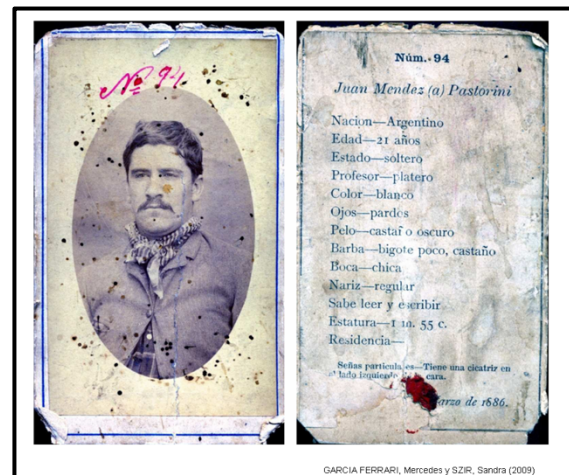 Nº 94
Núm. 94
Juan Mendez (a) Pastorini
Nacion—Argentino
Edad—21 años
Estado—soltero
Profesor—platero
Color—blanco
Ojos—pardos
Pelo—castaño oscuro
Barba—bigote poco, castaño
Boca—chica
Nariz—regular
Sabe leer y escribir
Estatura—1 m. 55 c.
Residencia—
Señas particulares—Tiene una cicatriz en
el lado izquierdo cara.
arzo de 1886.
GARCIA FERRARI, Mercedes y SZIR, Sandra (2009)